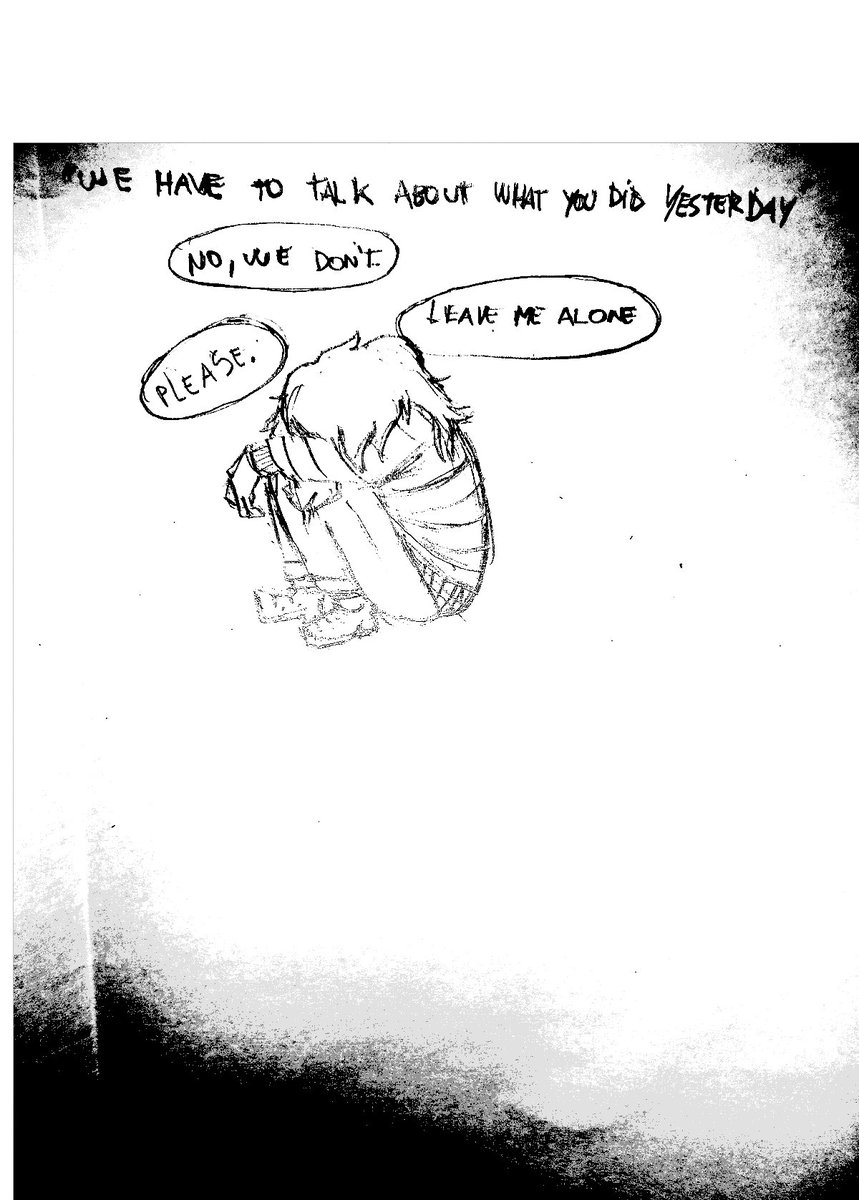 "WE HAVE TO TALK ABOUT WHAT YOU DID YESTERDAY"
NO, WE DON'T.
LEAVE ME ALONE
PLEASE.